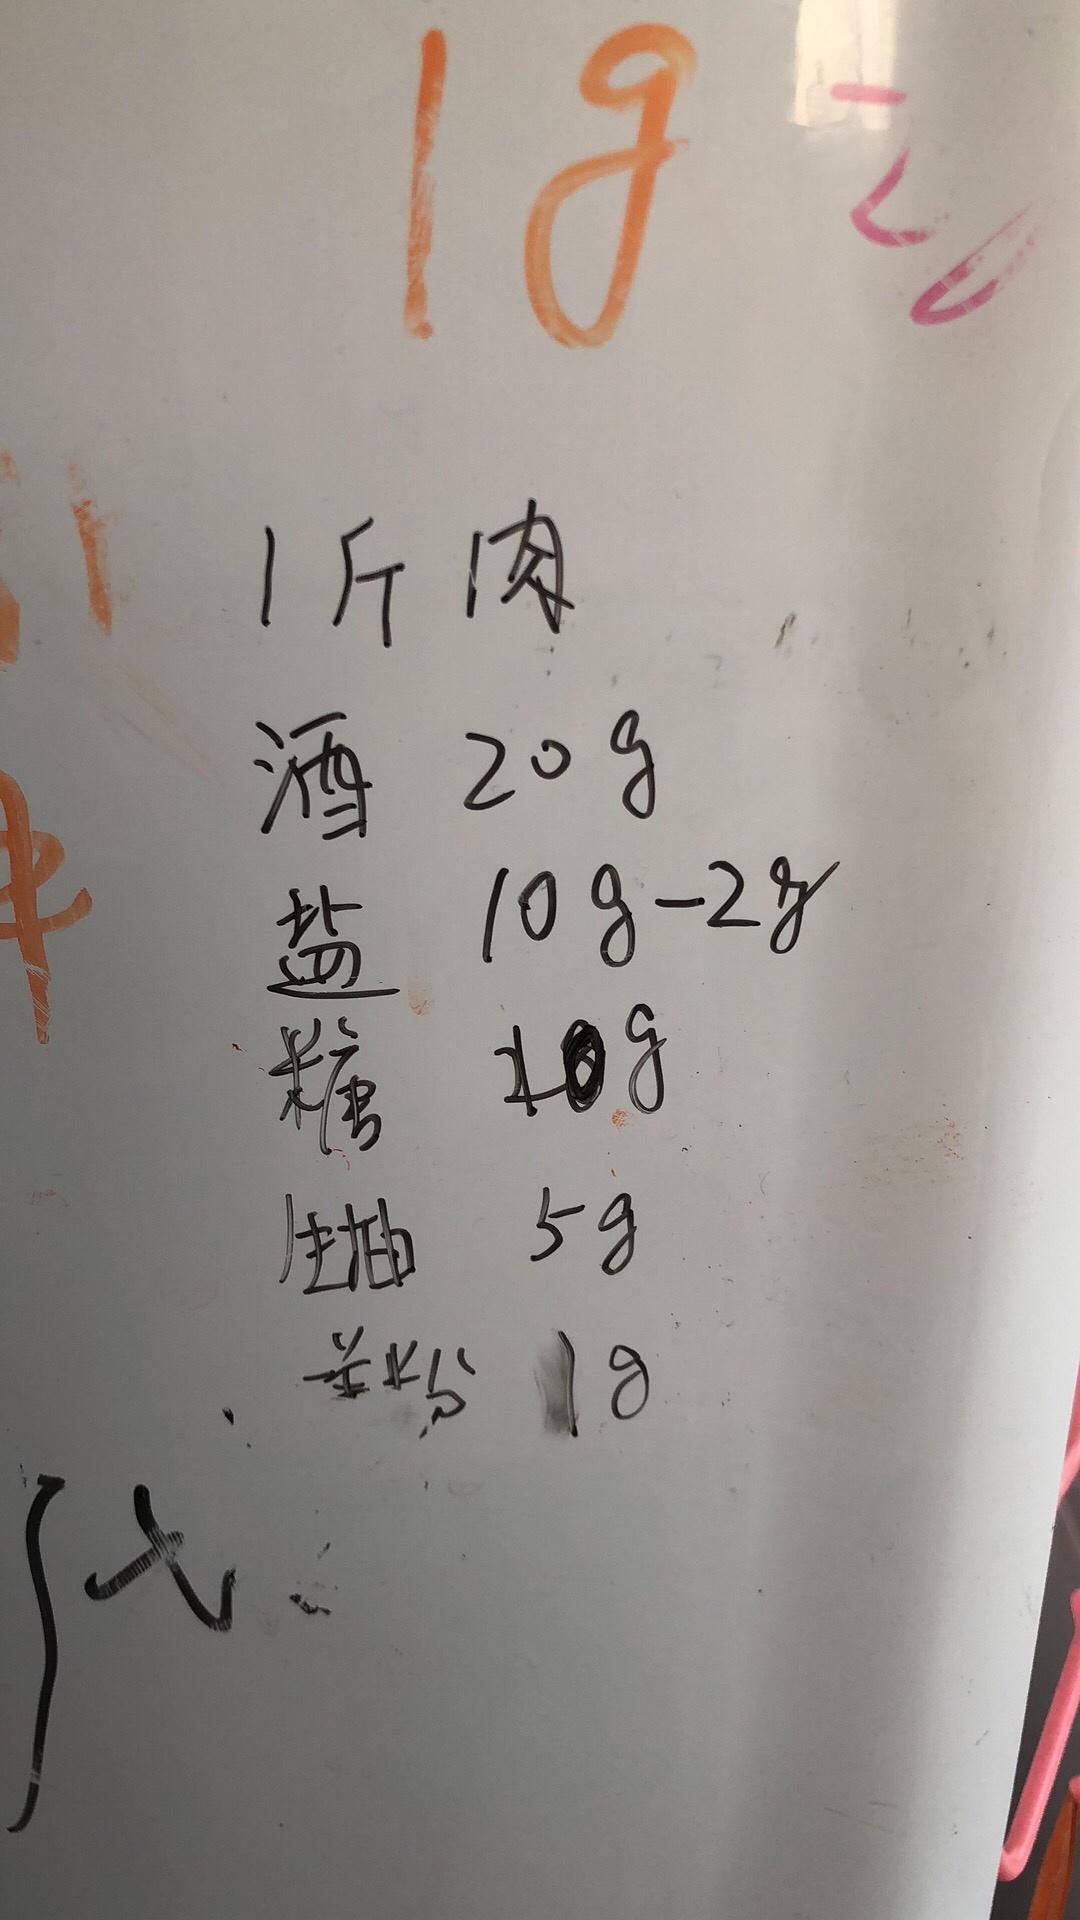 1g
1斤肉
酒 20g
盐 10g-2g
糖 10g
生抽 5g
姜粉 1g